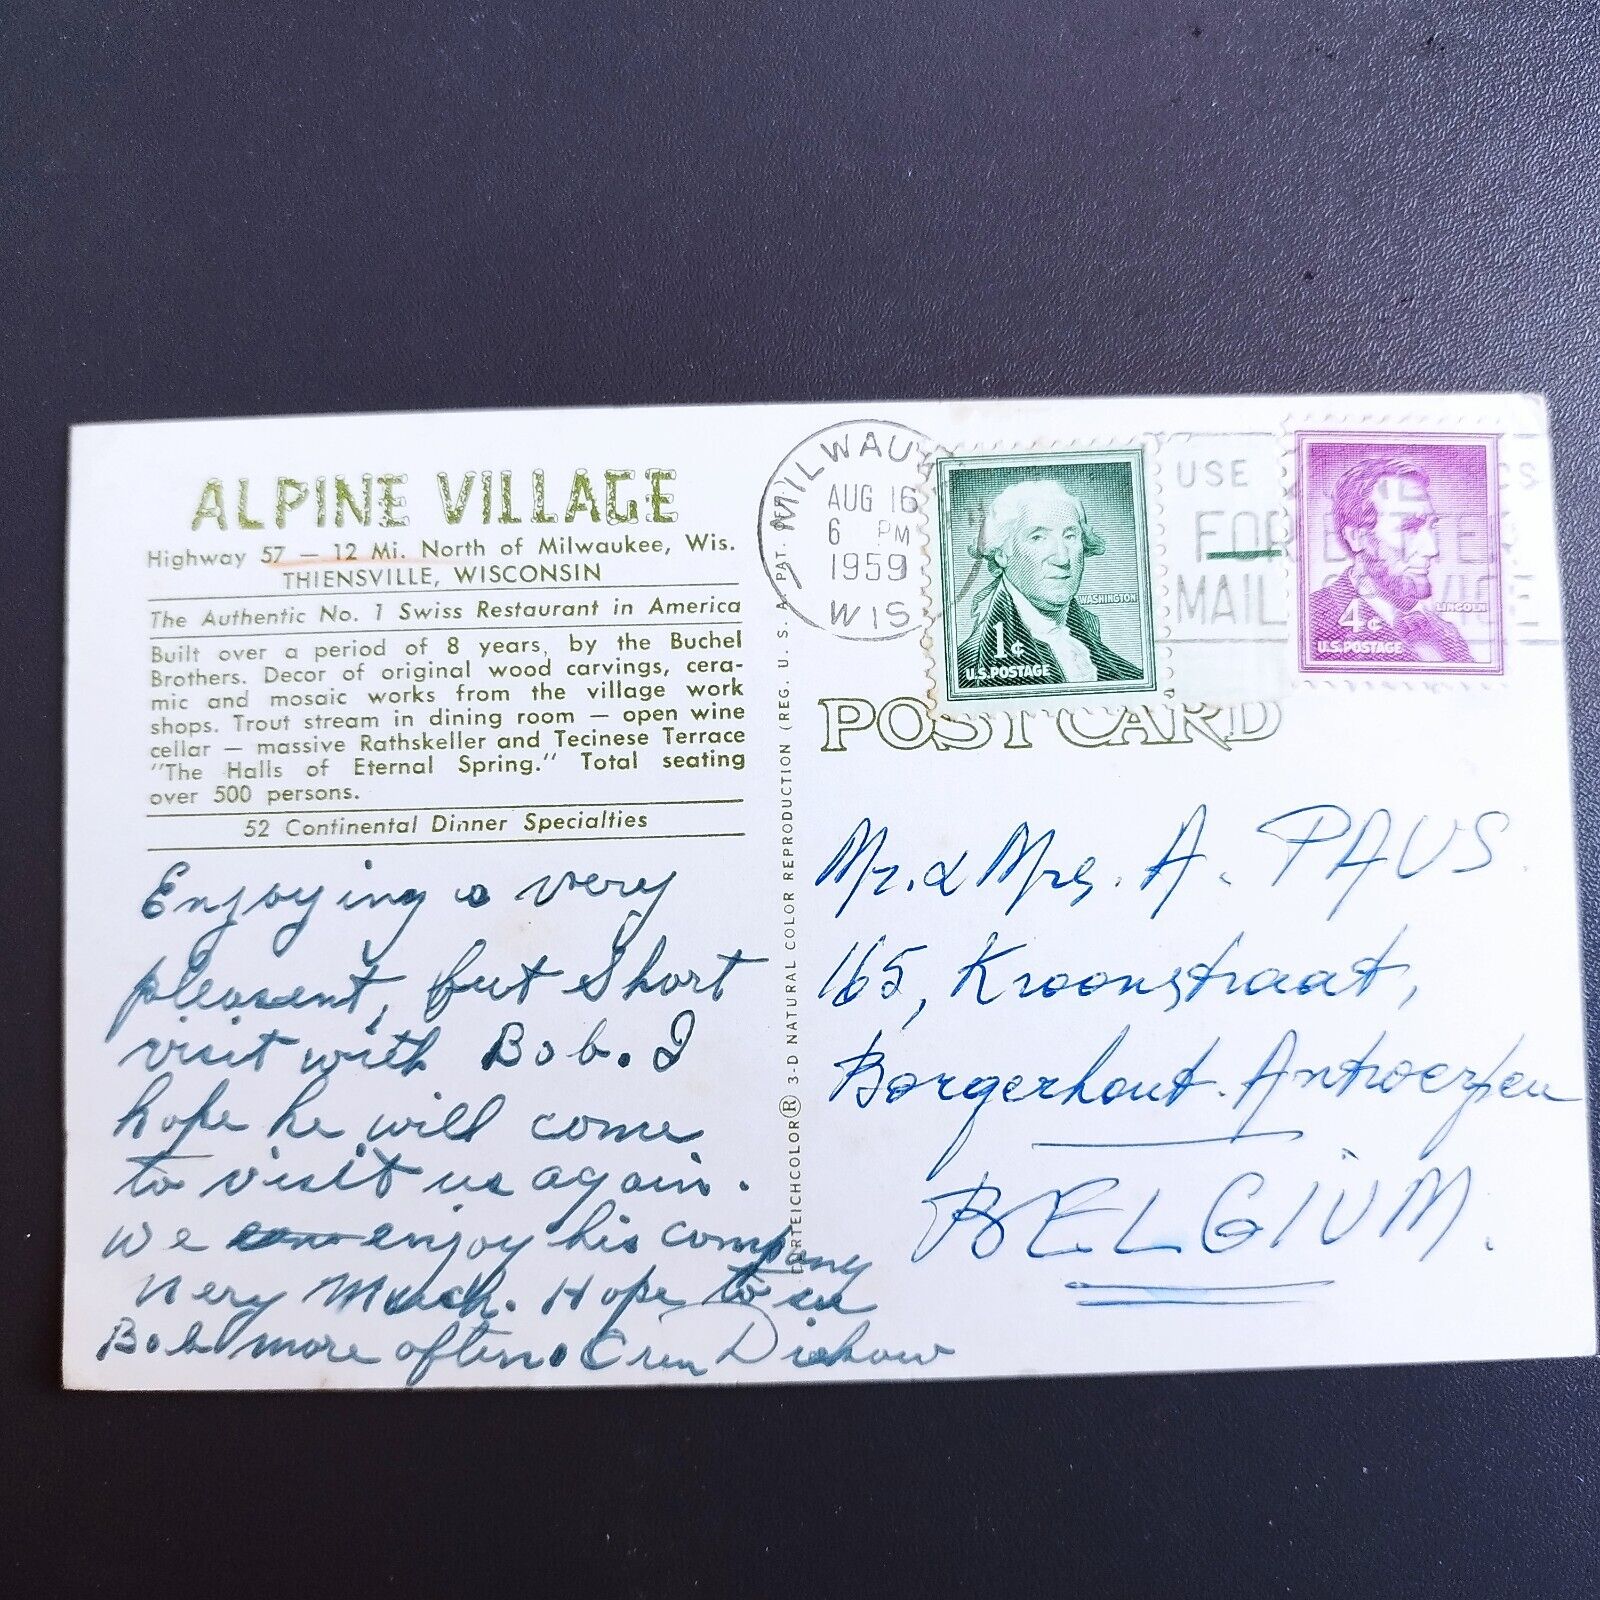 ALPINE VILLAGE
Highway 57 — 12 Mi. North of Milwaukee, Wis.
THIENSVILLE, WISCONSIN
The Authentic No. 1 Swiss Restaurant in America
Built over a period of 8 years, by the Buchel
Brothers. Decor of original wood carvings, cera-
mic and mosaic works from the village work
shops. Trout stream in dining room — open wine
cellar — massive Rathskeller and Tecinese Terrace
"The Halls of Eternal Spring." Total seating
over 500 persons.
52 Continental Dinner Specialties
Enjoying a very
pleasent, but short
visit with Bob. I
hope he will come
to visit us again.
We enjoy his company
very much. Hope to see
Bob more often.
CURTEICHCOLOR® 3-D NATURAL COLOR REPRODUCTION (REG. U. S. A. PAT. OFF.)
MILWAU
AUG 16
6 PM
1959
WIS
USE
FOR BETTER
MAIL SERVICE
WASHINGTON
1¢
U.S. POSTAGE
LINCOLN
4¢
U.S. POSTAGE
POST CARD
Mr. & Mrs. A. PAUS.
165, Kroonstraat,
Borgerhout-Antwerpen
BELGIUM.